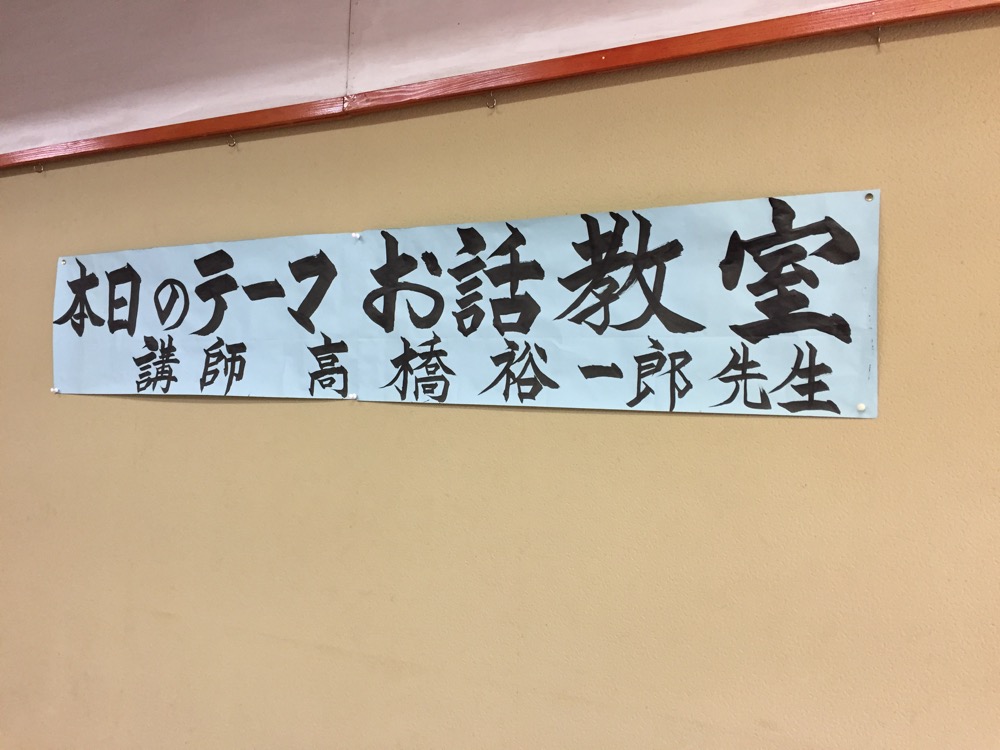 本日のテーマ お話教室
講師 高橋裕一郎先生